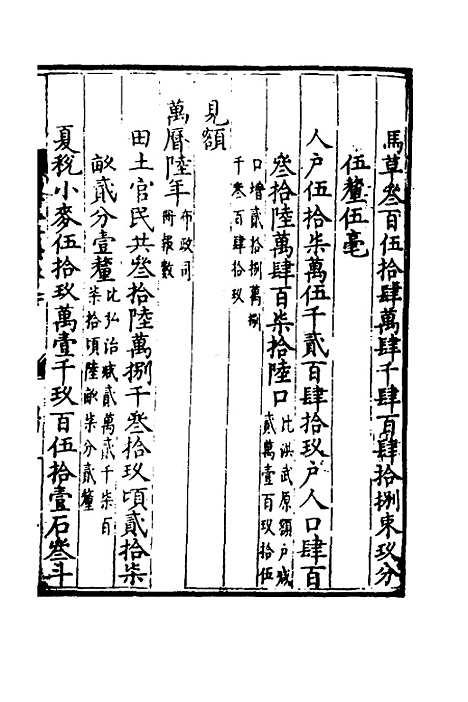 馬草叁百伍拾肆萬肆千肆百肆拾捌束玖分
伍釐伍毫
人户伍拾柒萬伍千貳百肆拾玖户人口肆百
叁拾陸萬肆百柒拾陸口比洪武原額户减
貳萬壹百玖拾伍
口增貳拾捌萬捌
千叁百肆拾玖
見額
萬曆陸年布政司
所報數
田土官民共叁拾陸萬捌千叁拾玖頃貳拾柒
畝貳分壹釐比弘治减貳萬貳千柒百
柒拾頃陸畝柒分貳釐
夏稅小麥伍拾玖萬壹千玖百伍拾壹石叁斗